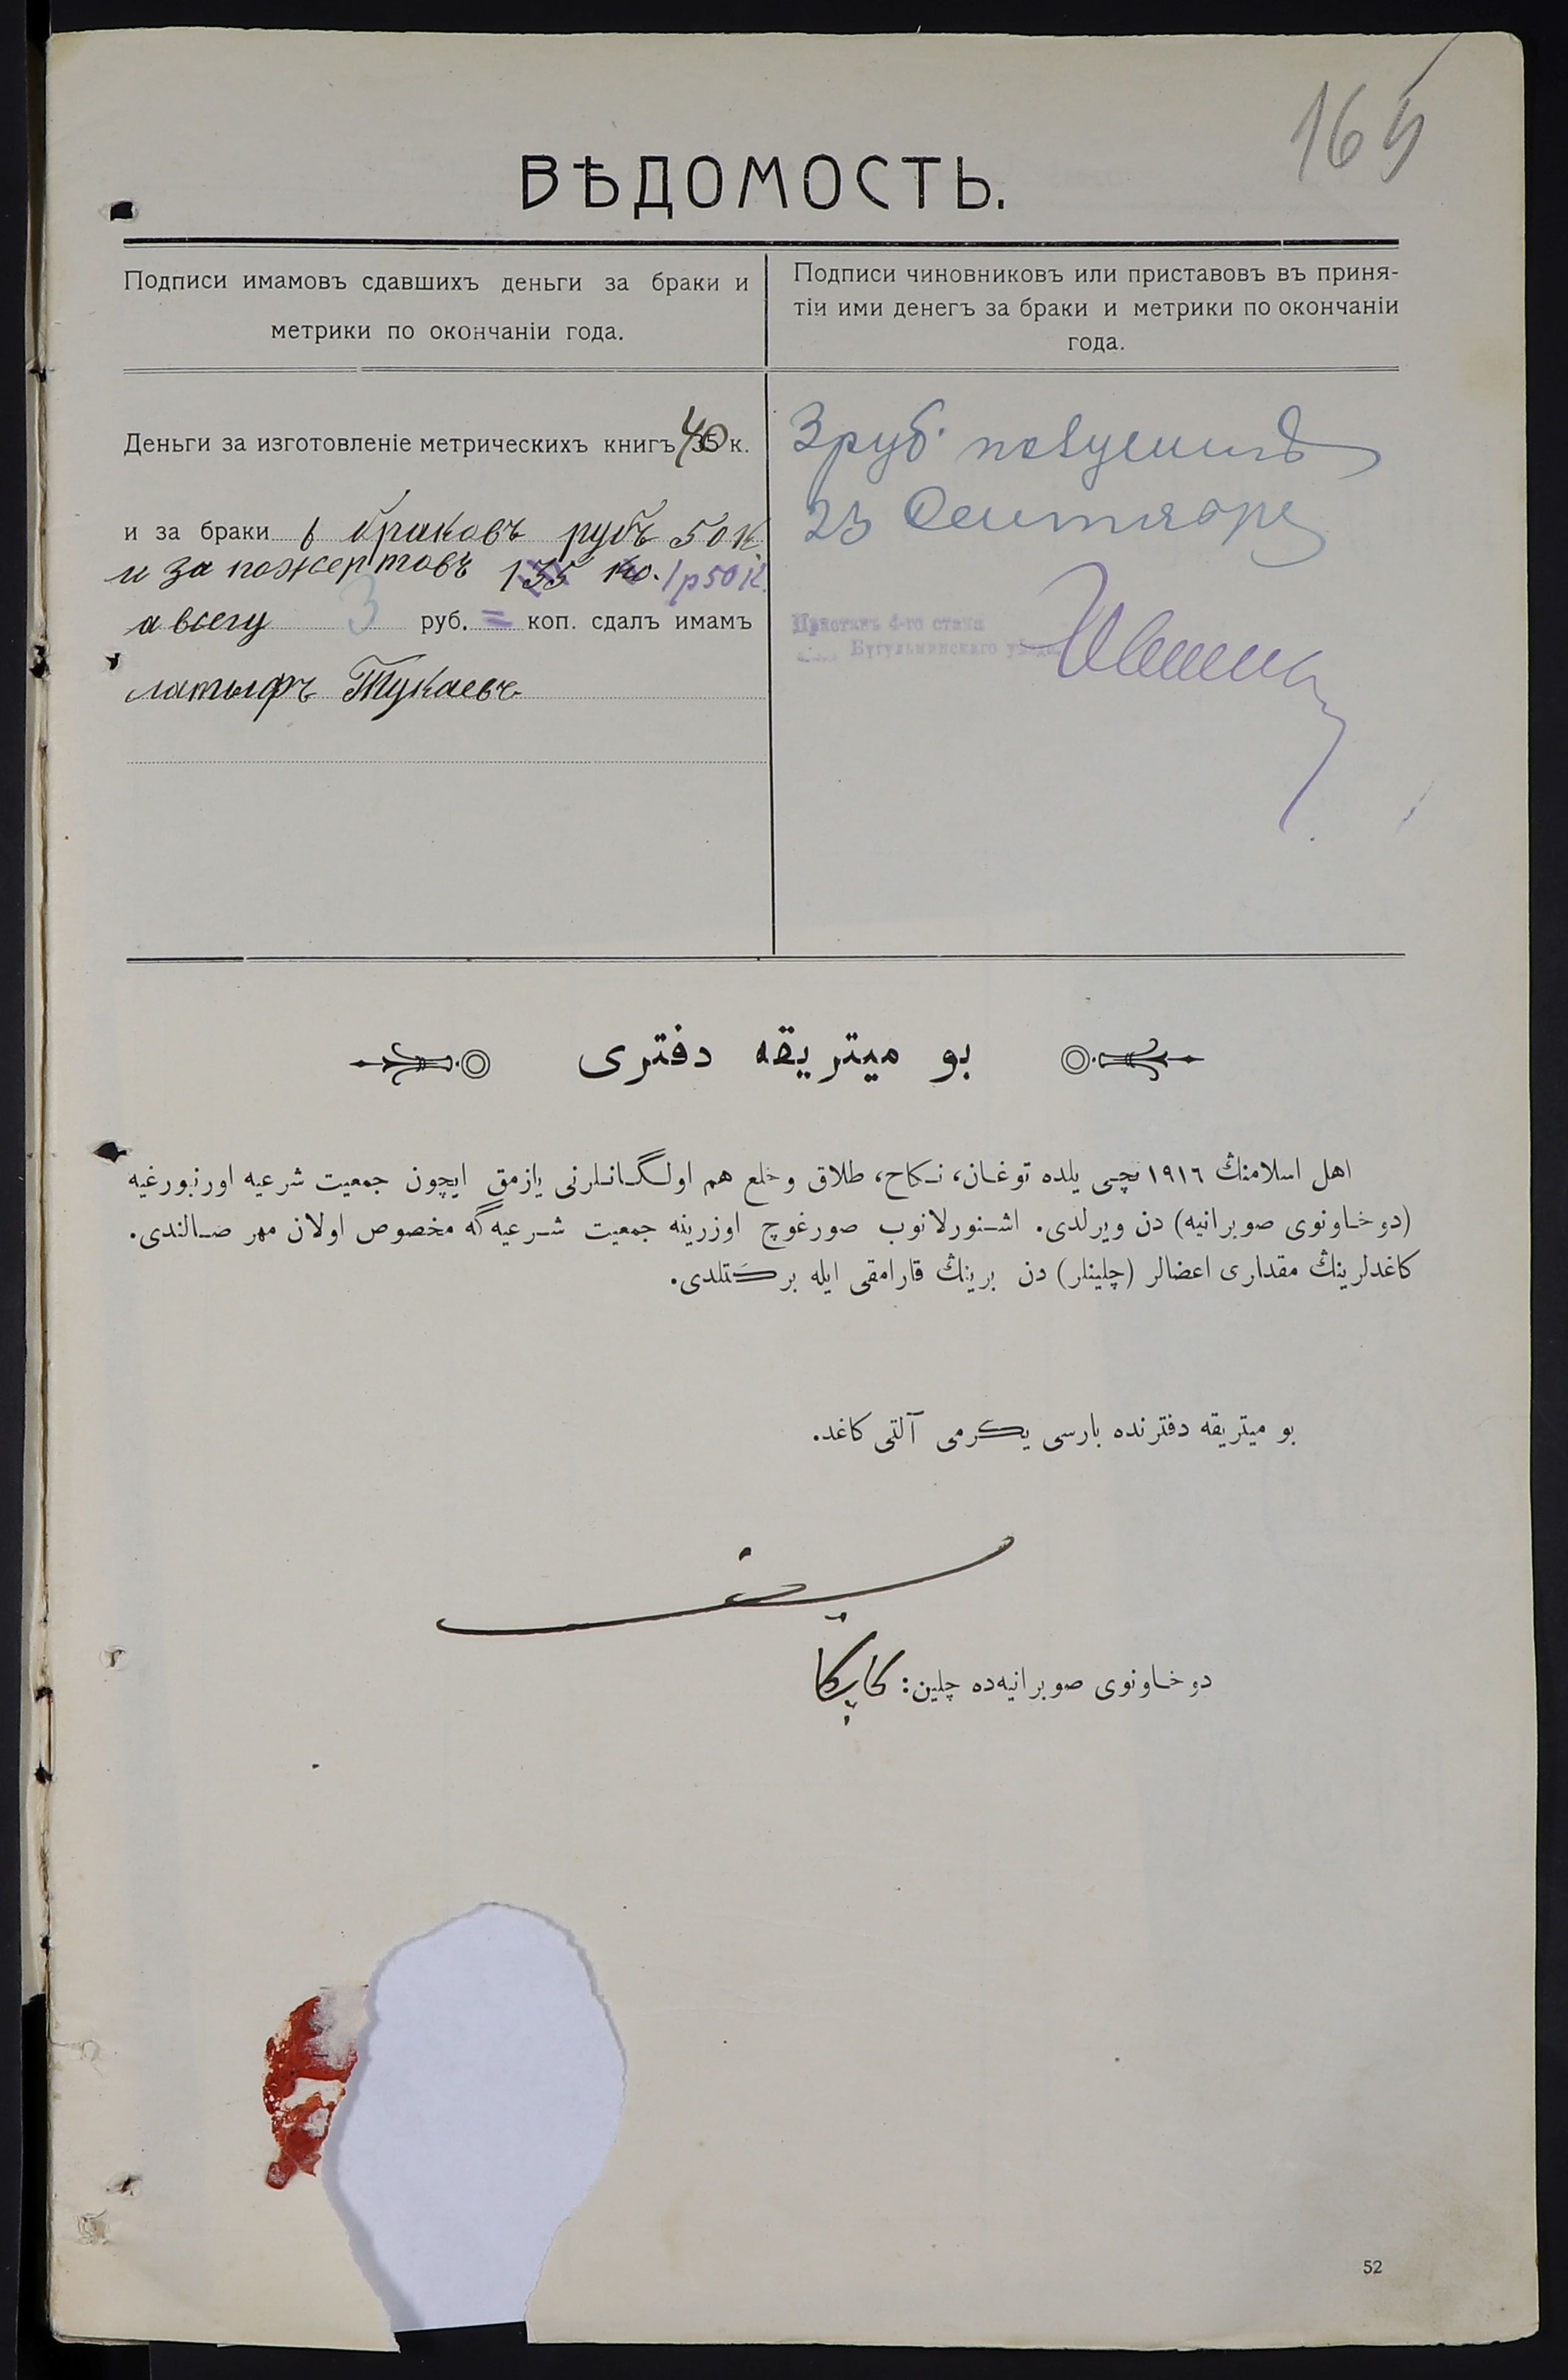 165
ВѢДОМОСТЬ.
Подписи имамовъ сдавшихъ деньги за браки и
метрики по окончаніи года.
Подписи чиновниковъ или приставовъ въ приня-
тіи ими денегъ за браки и метрики по окончаніи
года.
Деньги за изготовленіе метрическихъ книгъ 40 к.
и за браки 6 браковъ рубъ 50 к
и за пожертовъ 135 ко. 1р50к.
а всегу 3 руб. = коп. сдалъ имамъ
латыфъ Тукаевъ
3 руб. получилъ
23 Сентября
Приставъ 4-го стана
Бугульминскаго уѣзда
بو ميتريقه دفترى
اهل اسلامنڭ ١٩١٦ نچى يلده توغان، نكاح، طلاق وخلع هم اولگانلرنى يازمق ايچون جمعيت شرعيه اورنبورغيه
(دوخاونوى صوبرانيه) دن ويرلدى. اشنورلانوب صورغوچ اوزرينه جمعيت شرعيه گه مخصوص اولان مهر صالندى.
كاغدلرينڭ مقدارى اعضالر (چلينلر) دن برينڭ قارامقى ايله بركَتلدى.
بو ميتريقه دفترنده بارسى يكرمى آلتى كاغد.
دوخاونوى صوبرانيه‌ده چلين:
52